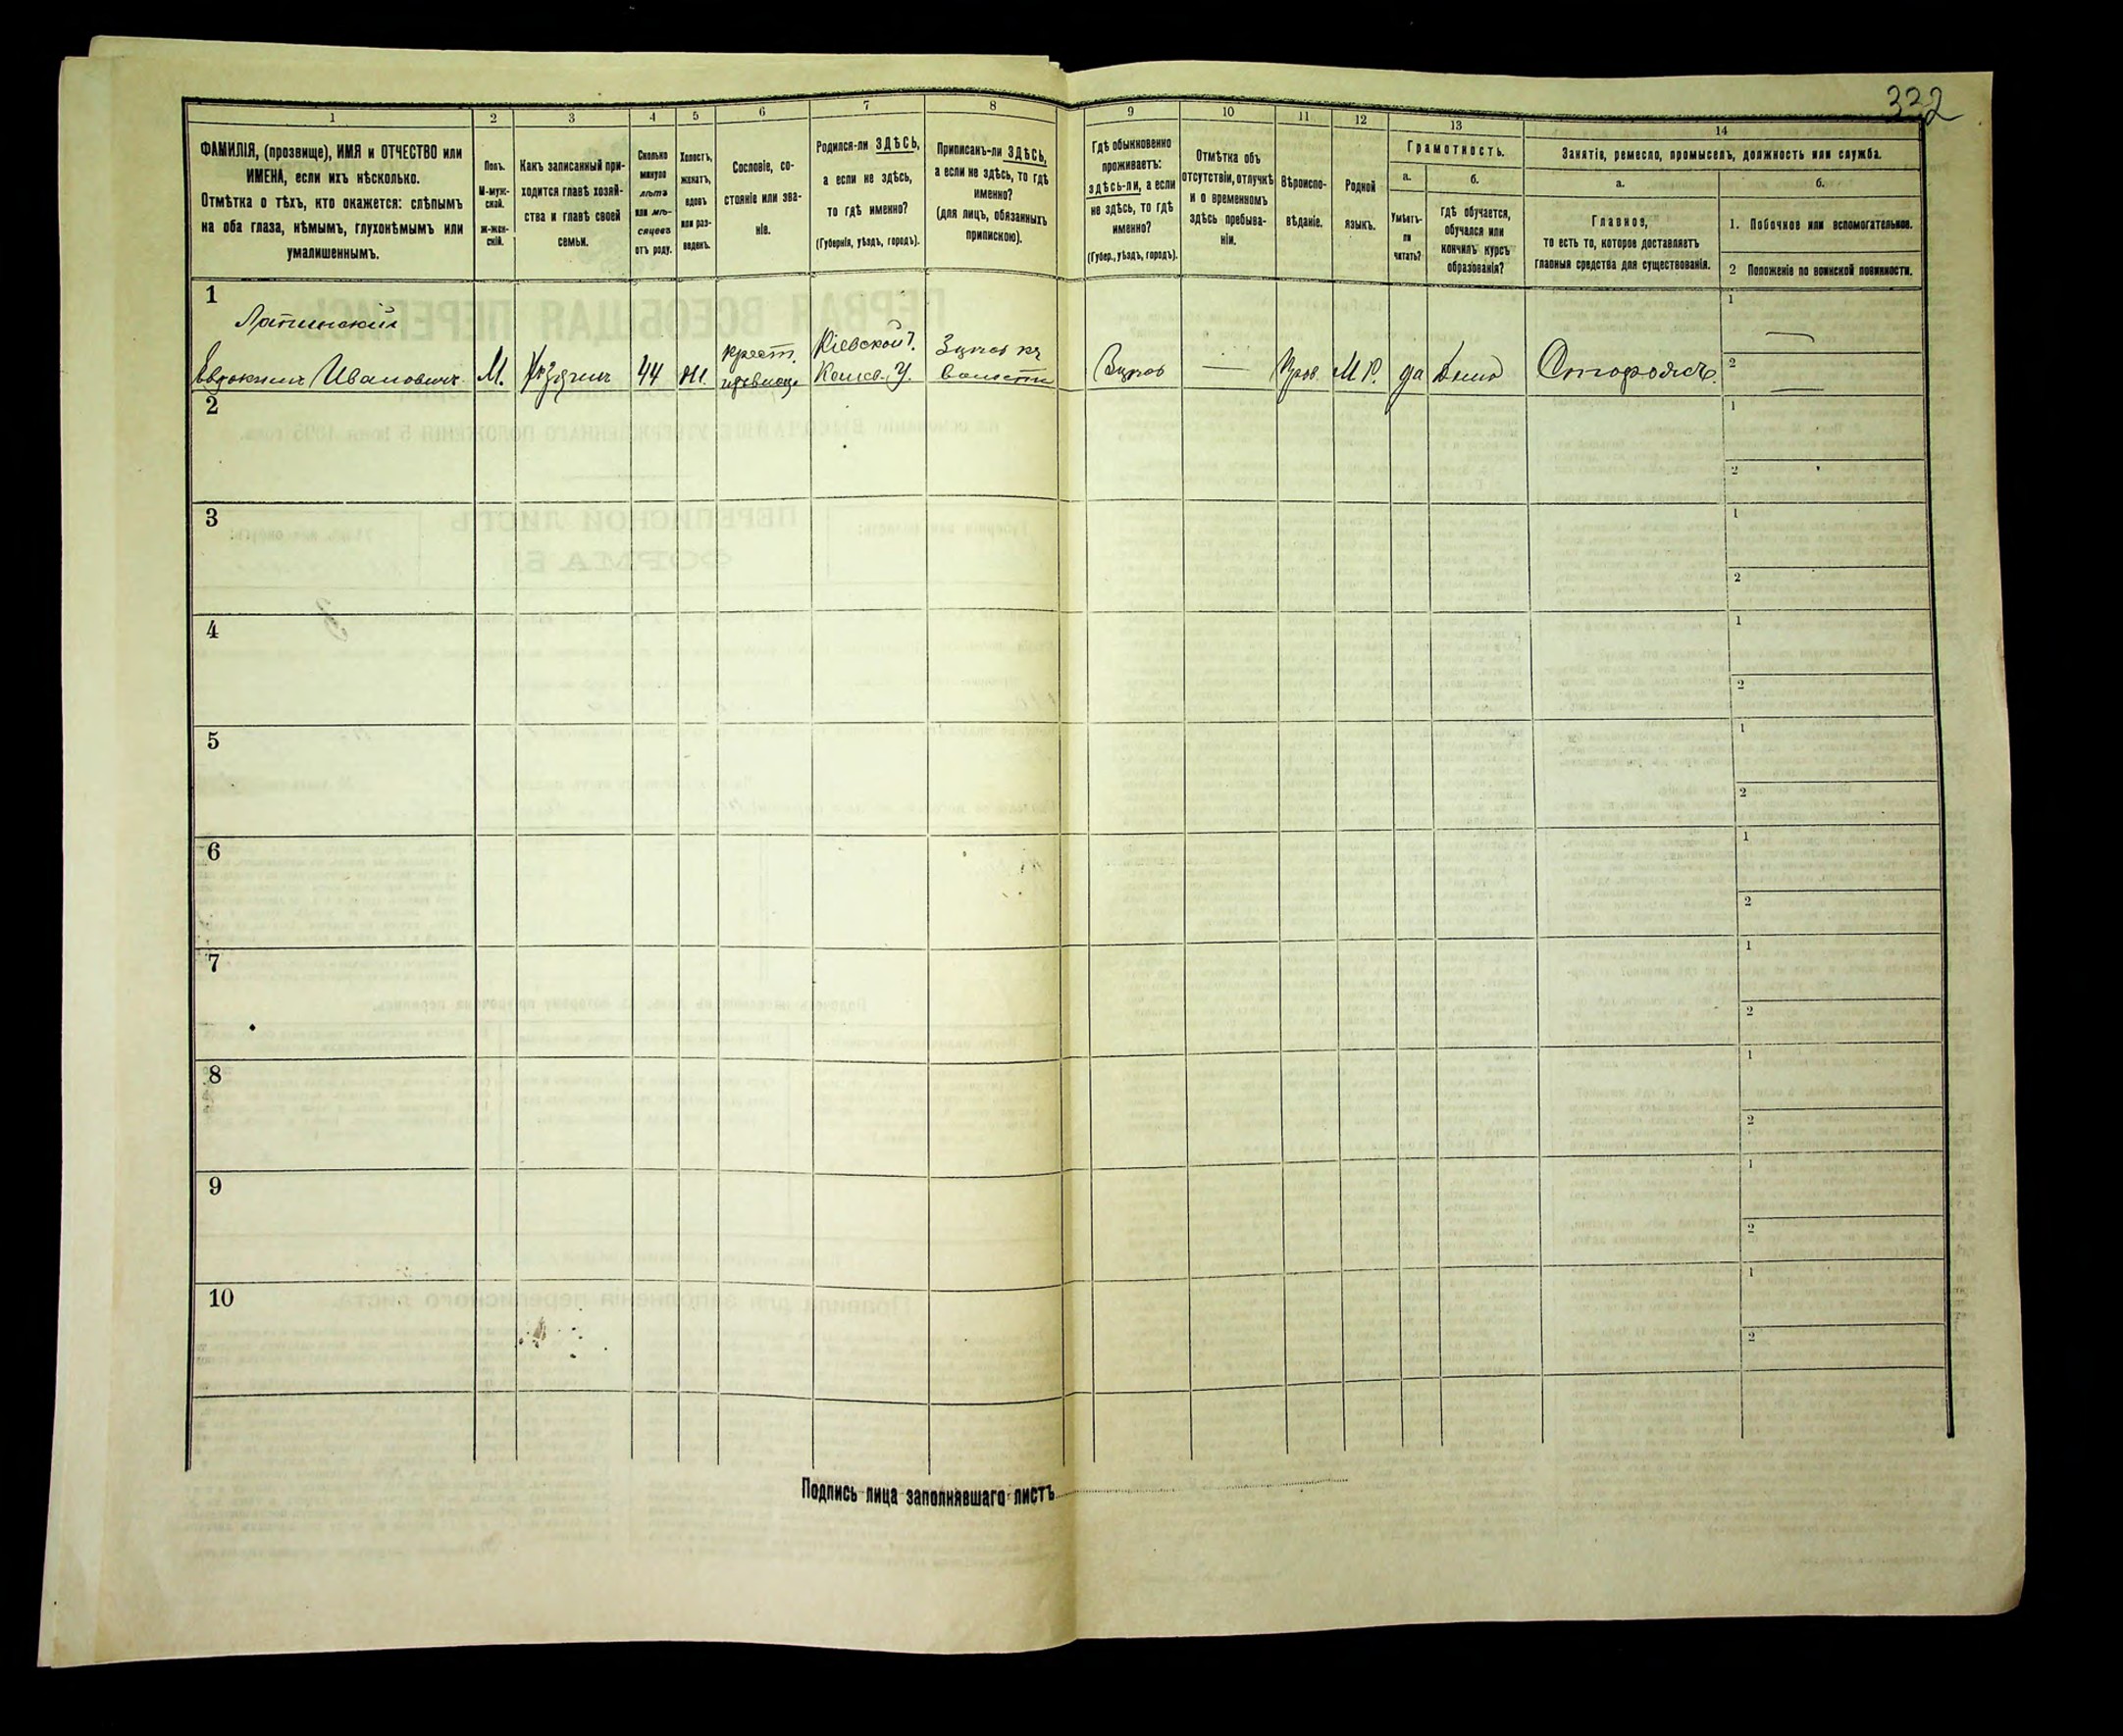 332
1
2
3
4
5
6
7
8
9
10
11
12
13
14
ФАМИЛІЯ, (прозвище), ИМЯ и ОТЧЕСТВО или
ИМЕНА, если ихъ нѣсколько.
Отмѣтка о тѣхъ, кто окажется: слѣпымъ
на оба глаза, нѣмымъ, глухонѣмымъ или
умалишеннымъ.
Полъ.
М-муж-
ской.
ж-жен-
скій.
Какъ записанный при-
ходится главѣ хозяй-
ства и главѣ своей
семьи.
Сколько
минуло
лѣтъ
или мѣ-
сяцевъ
отъ роду.
Холостъ,
женатъ,
вдовъ
или раз-
веденъ.
Сословіе, со-
стояніе или зва-
ніе.
Родился-ли ЗДѢСЬ,
а если не здѣсь,
то гдѣ именно?
(Губернія, уѣздъ, городъ).
Приписанъ-ли ЗДѢСЬ,
а если не здѣсь, то гдѣ
именно?
(для лицъ, обязанныхъ
припискою).
Гдѣ обыкновенно
проживаетъ:
здѣсь-ли, а если
не здѣсь, то гдѣ
именно?
(Губер., уѣздъ, городъ).
Отмѣтка объ
отсутствіи, отлучкѣ
и о временномъ
здѣсь пребыва-
ніи.
Вѣроиспо-
вѣданіе.
Родной
языкъ.
Грамотность.
а.
Умѣетъ-
ли
читать?
б.
Гдѣ обучается,
обучался или
кончилъ курсъ
образованія?
Занятія, ремесло, промыселъ, должность или служба.
а.
Главное,
то есть то, которое доставляетъ
главныя средства для существованія.
б.
1. Побочное или вспомогательное.
2 Положеніе по воинской повинности.
1
Лапинскій
Евдокимъ Ивановичъ
М.
Хозяинъ
44
ж.
крест.
Кіевской г.
У.
волости
Прав.
М. Р.
да
Сторожъ.
1
2
2
1
2
3
1
2
4
1
2
5
1
2
6
1
2
7
1
2
8
1
2
9
1
2
10
1
2
Подпись лица заполнявшаго листъ